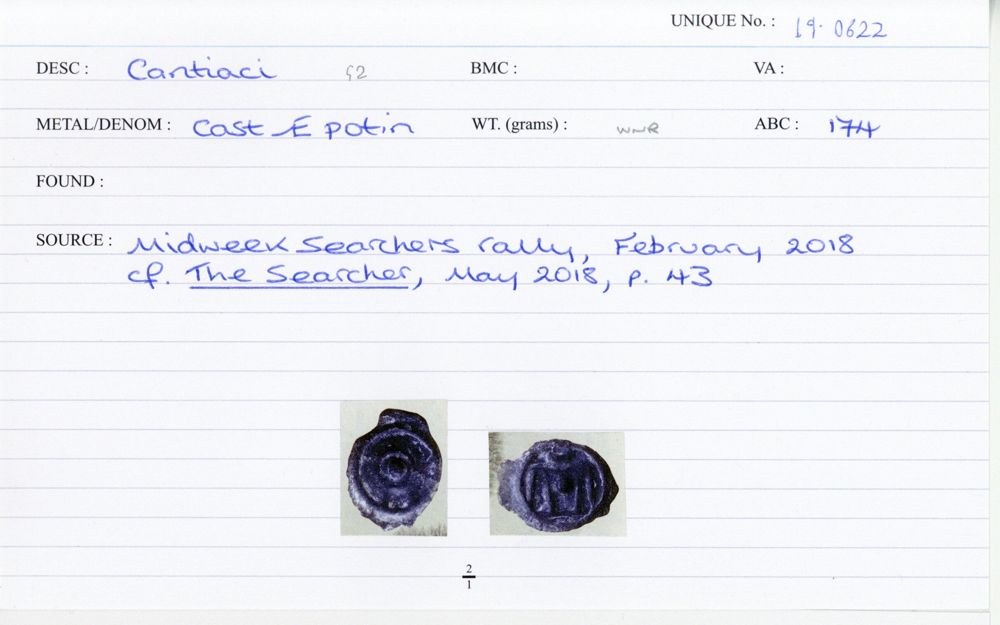 UNIQUE No. : 19.0622
DESC : Cantiaci G2 BMC : VA :
METAL/DENOM : Cast Æ potin WT. (grams) : WNR ABC : 174
FOUND :
SOURCE : Midweek Searchers rally, February 2018
cf. The Searcher, May 2018, p. 43
2
1